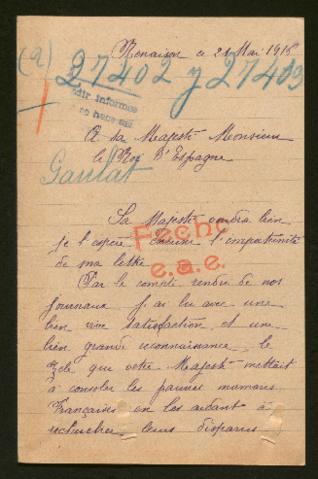 (a)
Renaison ce 21 Mai 1916
27402 y 27403
Pedir informes
se hace así
A sa Majesté Monsieur
le Roi d'Espagne
Gaulat
Sa Majesté voudra bien
je l'espère excuser l'importunité
de ma lettre
Fecho
e.a.e.
Par le compte rendu de nos
journaux j'ai lu avec une
bien vive satisfaction et une
bien grande reconnaissance le
zèle que votre Majesté mettait
à consoler les pauvres mamans
Françaises en les aidant à
rechercher leurs disparus.